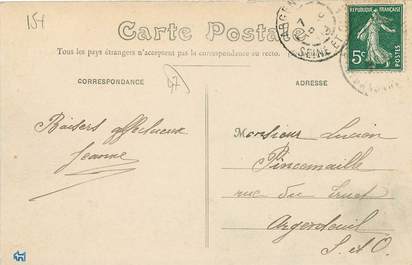 154
Carte Postale
Tous les pays étrangers n'acceptent pas la correspondance au recto.
CORRESPONDANCE
ADRESSE
47
REPUBLIQUE FRANÇAISE
5c
POSTES
ARGEN
7
SEINE ET
Baisers affectueux
Jeanne
Monsieur Lucien
Pincemaille
rue du
Argenteuil
S. et O.